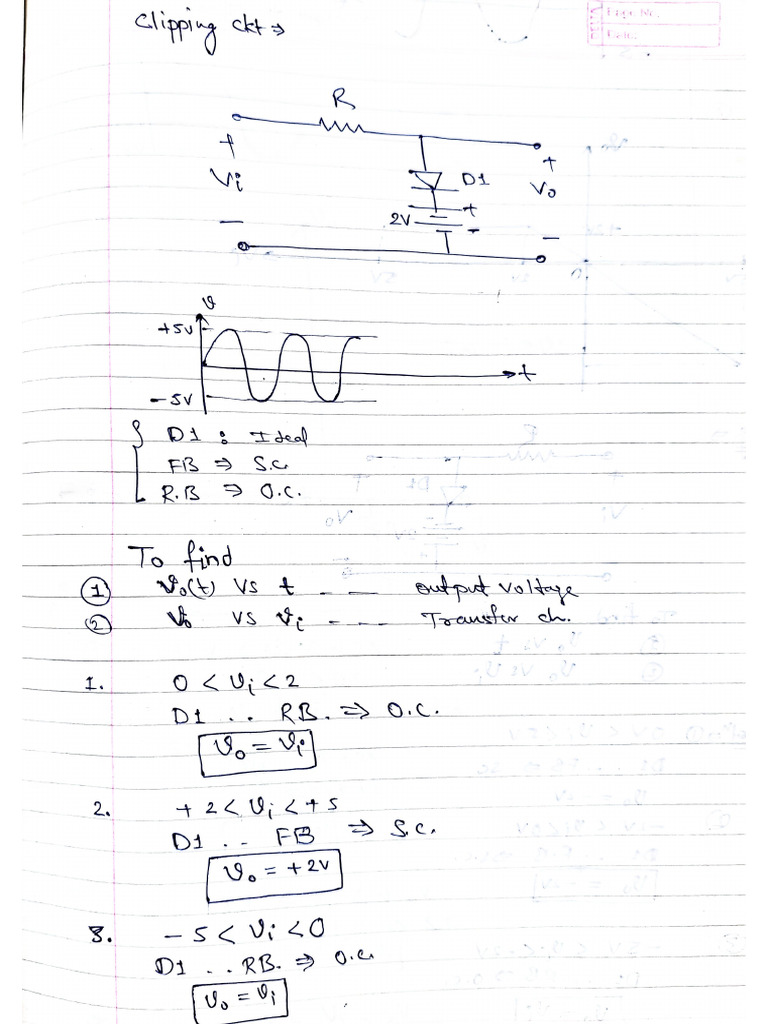 Clipping ckt ⇒
Page No.
Date:
R
+
Vi
−
D1
2V
+
-
+
Vo
−
v
+5v
-5v
t
D1 : Ideal
FB ⇒ S.C.
R.B ⇒ O.C.
To find
① vo(t) vs t - - - output voltage
② vo vs vi - - - Transfer ch.
1. 0 < vi < 2
D1 .. RB. ⇒ O.C.
vo = vi
2. +2 < vi < +5
D1 .. FB ⇒ S.C.
vo = +2V
3. -5 < vi < 0
D1 .. RB. ⇒ O.C.
vo = vi